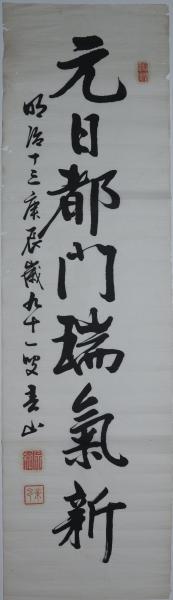 元日都門瑞氣新
明治十三庚辰歲九十一叟春山